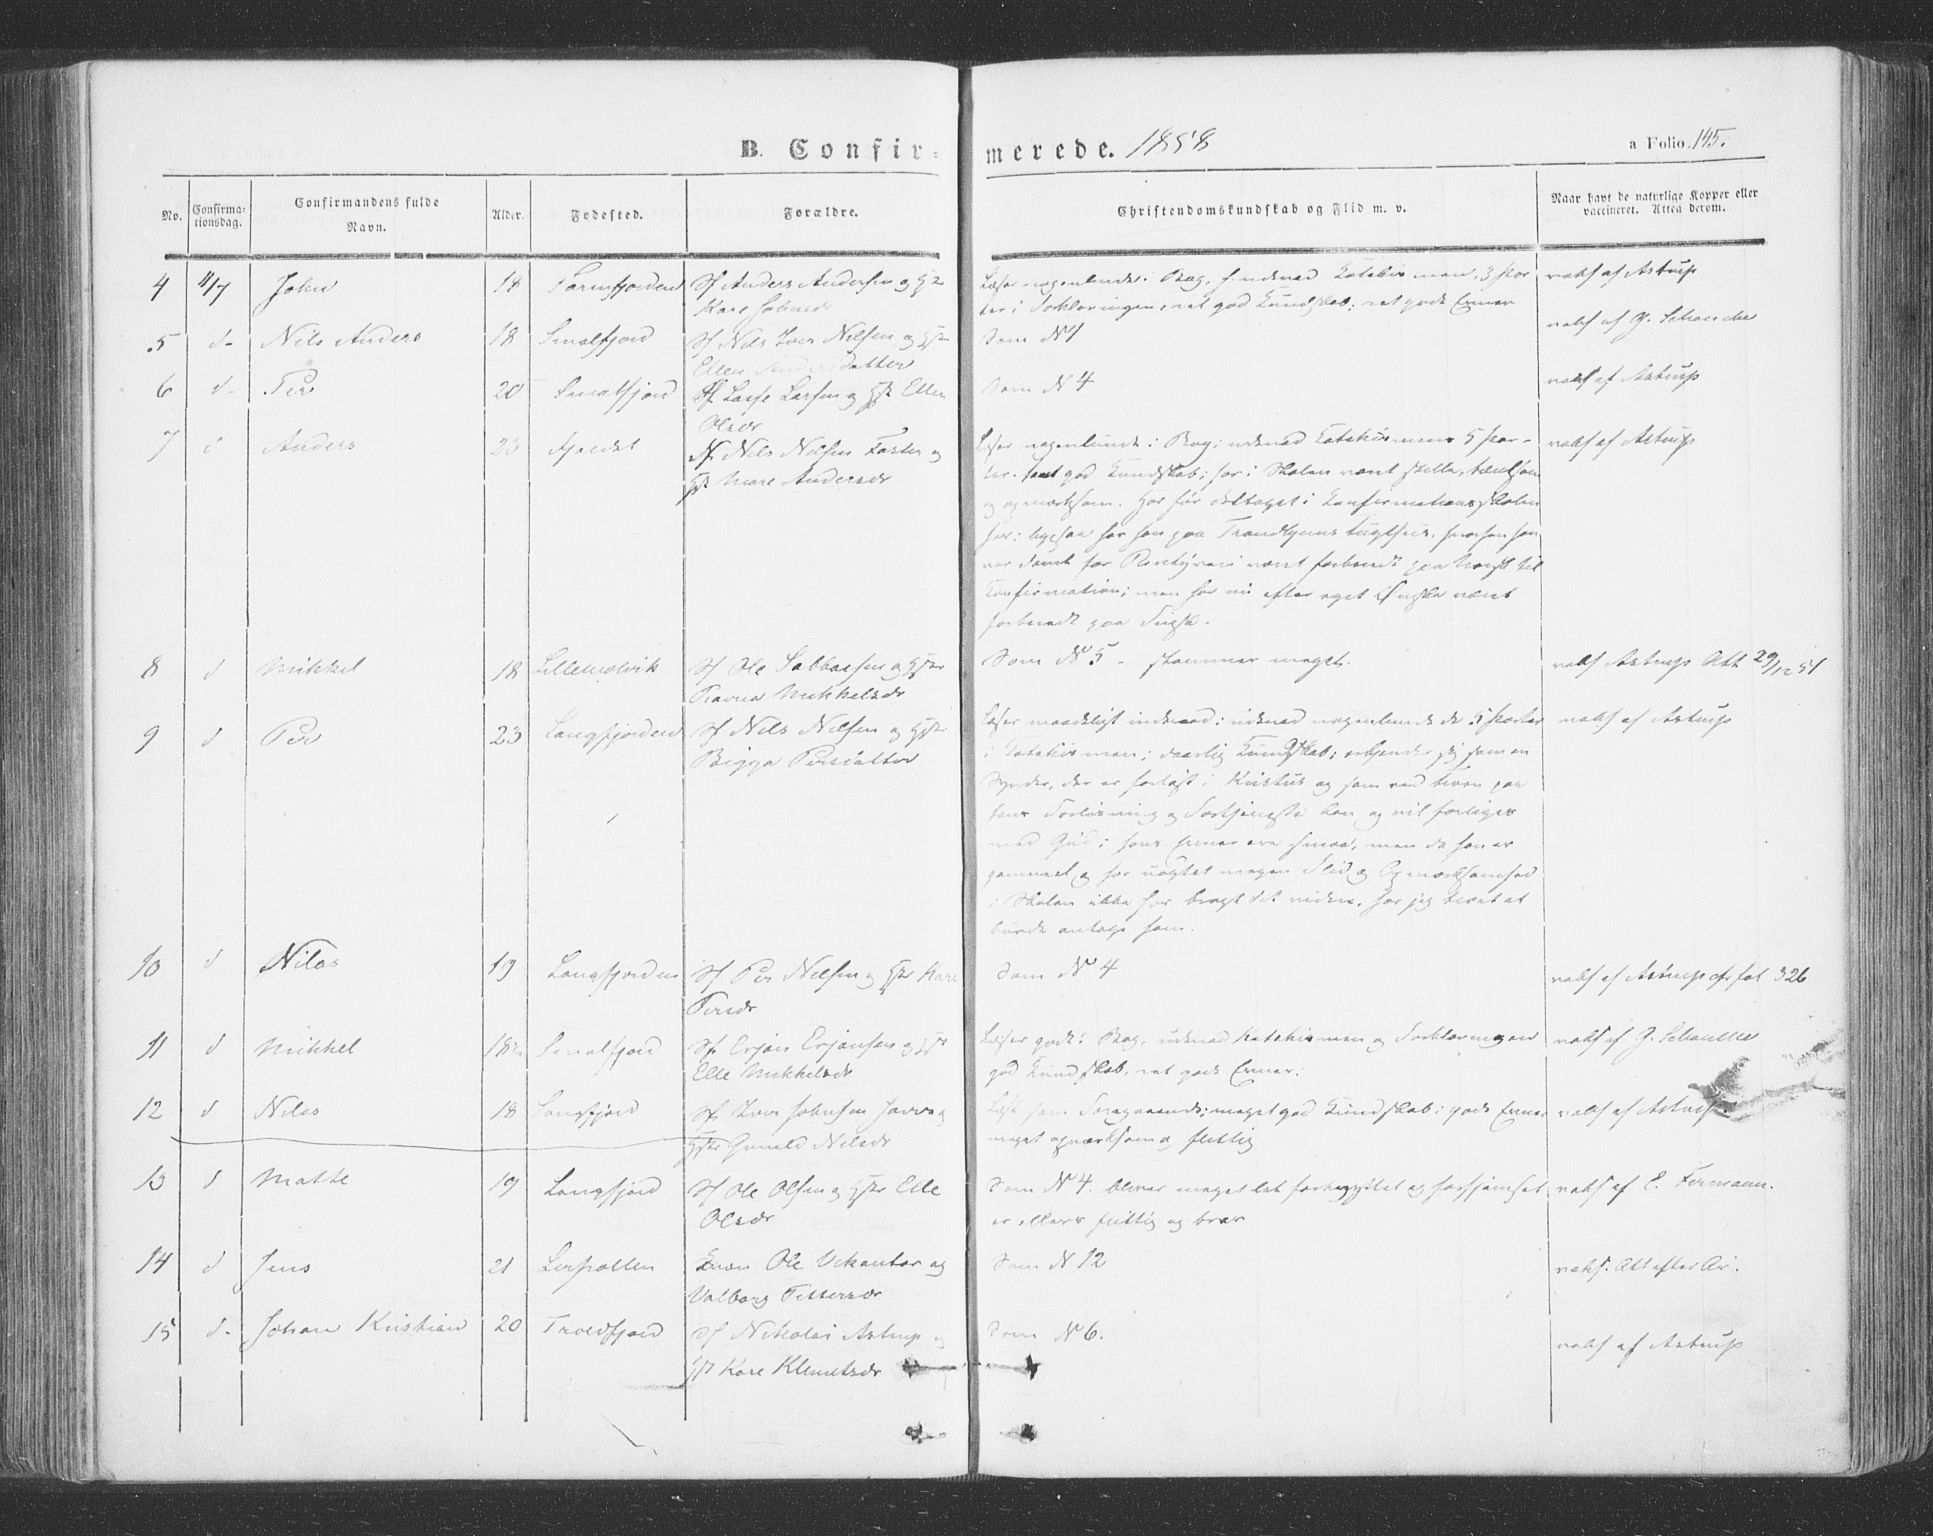 B. Confir- merede. 1858
a Folio 145.
No. Confirmationsdag. Confirmandens fulde Navn. Alder. Fødested. Forældre. Christendomskundskab og Flid m. v. Naar havt de naturlige Kopper eller vaccineret. Attea derom.
4 11/7 John 18 Sf Anders Andersen og
Læser nogenlunde i Bog, udenad Katekismen, 3 Par-
ter i Forklaringen, ret god Kundskab; ret gode Evner
vaks af Astrup
5 d- Nils Anders 18 Smalfjord Sf Nils Iver Nilsen og Hstr
Ellen Andersdatter
Som N 1
vaks af G. Schanche
6 d- Per 20 Smalfjord Sf Lasse Larsen og Hst Ellen
Olsdr
Som N 4
vaks af Astrup
7 d Anders 23 Sf Nils Nilsen og
Hst Mare Andersdr
Læser nogenlunde i Bog; udenad Katekismens 5 Par-
ter. samt god Kundskab; har i Skolen været stille,
og opmærksom. Har før deltaget i Konfirmationsskolen
her; ligesaa har han paa Trondhjems Tugthus, hvorhen han
var dømt for Rentyveri været forberedt paa Norsk til
Konfirmation; men har nu efter eget Ønske været
forberedt paa
vaks af Astrup
8 d Mikkel 18 Sf Ole og Hstr
Ravna Mikkelsdr
Som N 5 - stammer meget.
vaks Astrup Att 29/12 51
9 d Per 23 Langfjorden Sf Nils Nilsen og Hstr
Bigga Persdatter
Læser maadeligt indenad; udenad nogenlunde de 5 Parter
i Katekismen; daarlig Kundskab; erkjender sig som en
Synder, der er forløst i Kristus og som ved Troen paa
hans Forløsning og Fortjeneste kan og vil forliges
med Gud; hans Evner ere smaa, men da han er
gammel og har uagtet megen Flid og Opmærksomhed
i Skolen ikke har bragt det videre, har jeg troet at
burde antage ham.
vaks af Astrup
10 d Nilas 19 Langfjorden Sf Per Nilsen og Hstr Kare
Persdr
Som N 4
vaks af Astrup cfr fol 326
11 d Mikkel 18½ Smalfjord Sf Erjan Erjansen og Hstr
Elle Mikkelsdr
Læser godt i Bog, udenad Katekismen og Forklaringen
god Kundskab, ret gode Evner.
vaks af G. Schanche
12 d Nilas 18 Langfjord Sf Iver Johnsen og
Hstr Gunild Nilsdr
Læst som Foregaaende; meget god Kundskab; gode Evner
meget opmærksom og flittig
vaks af Astrup.
13 d Matte 19 Langfjord Sf Ole Olsen og Hstr Elle
Olsdr
Som N 4. bliver meget let
er ellers flittig og brav
vaks af E.
14 d Jens 21 Lerpollen Ole og
Valborg Pettersdr
Som N 12
vaks. Att efter Ar.
15 d- Johan Kristian 20 Troldfjord Sf Nikolai Astrup og
Hst Kare Klemetsdr
Som N 6.
vaks af Astrup